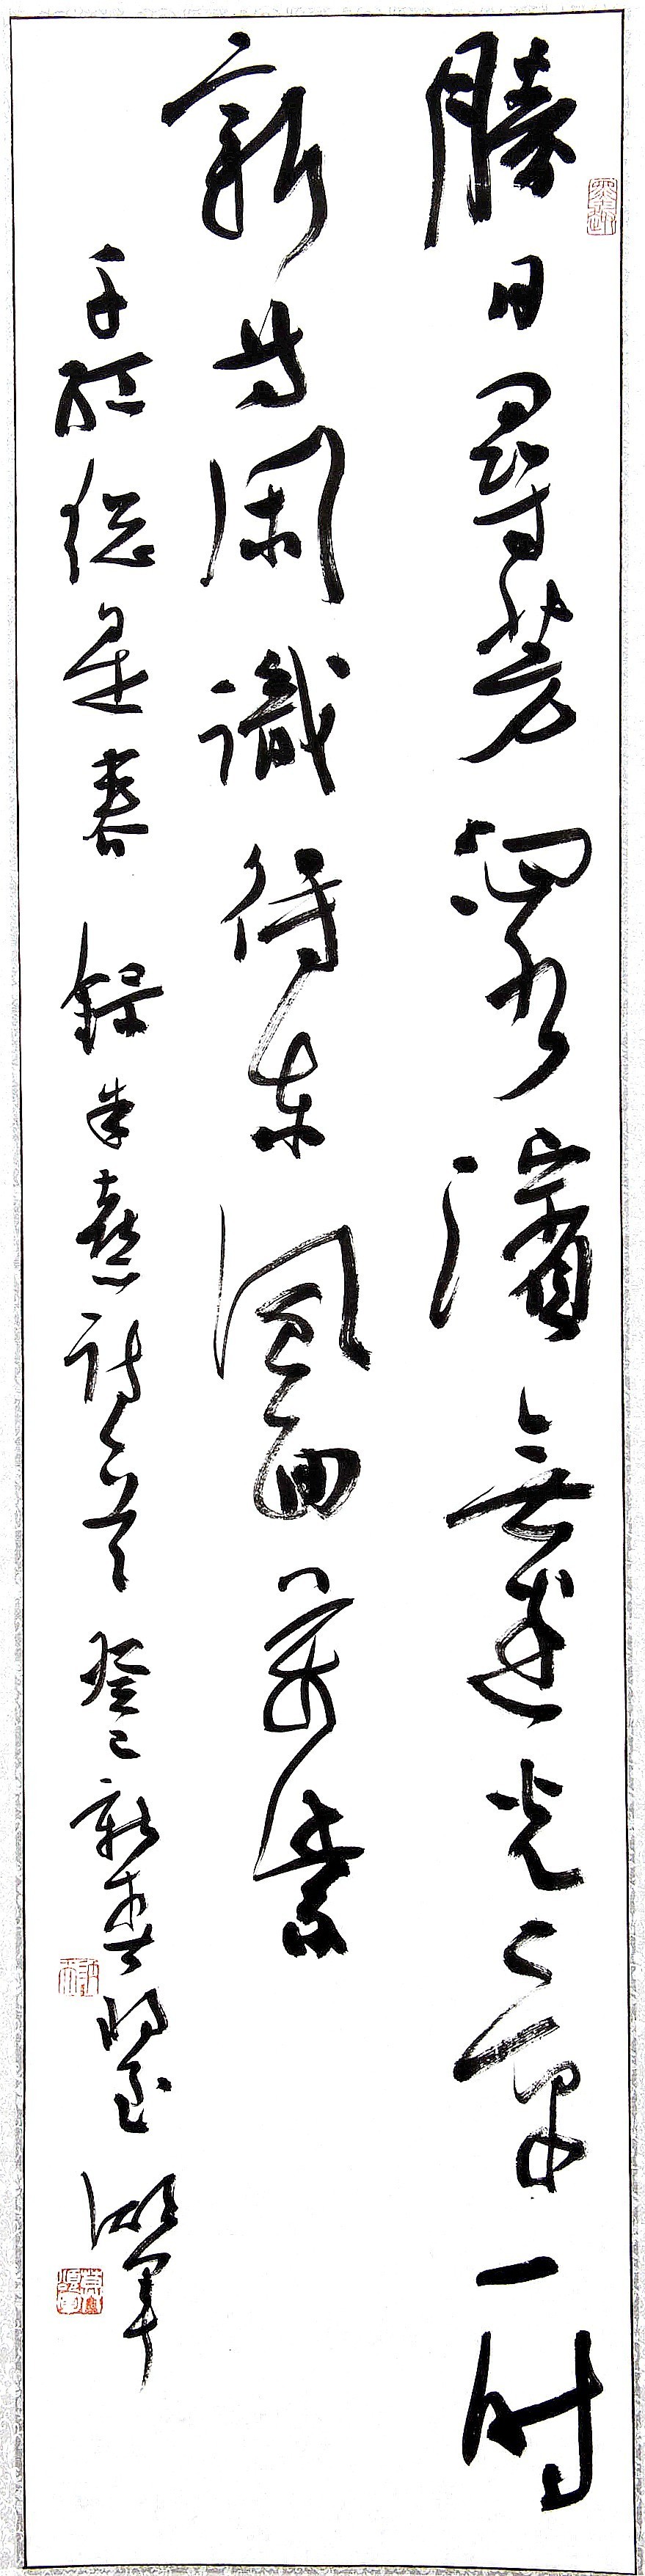 勝日尋芳泗水濱無邊光景一時
新等閑識得東風面萬紫
千紅總是春 錄朱熹詩一首 癸巳新春將至